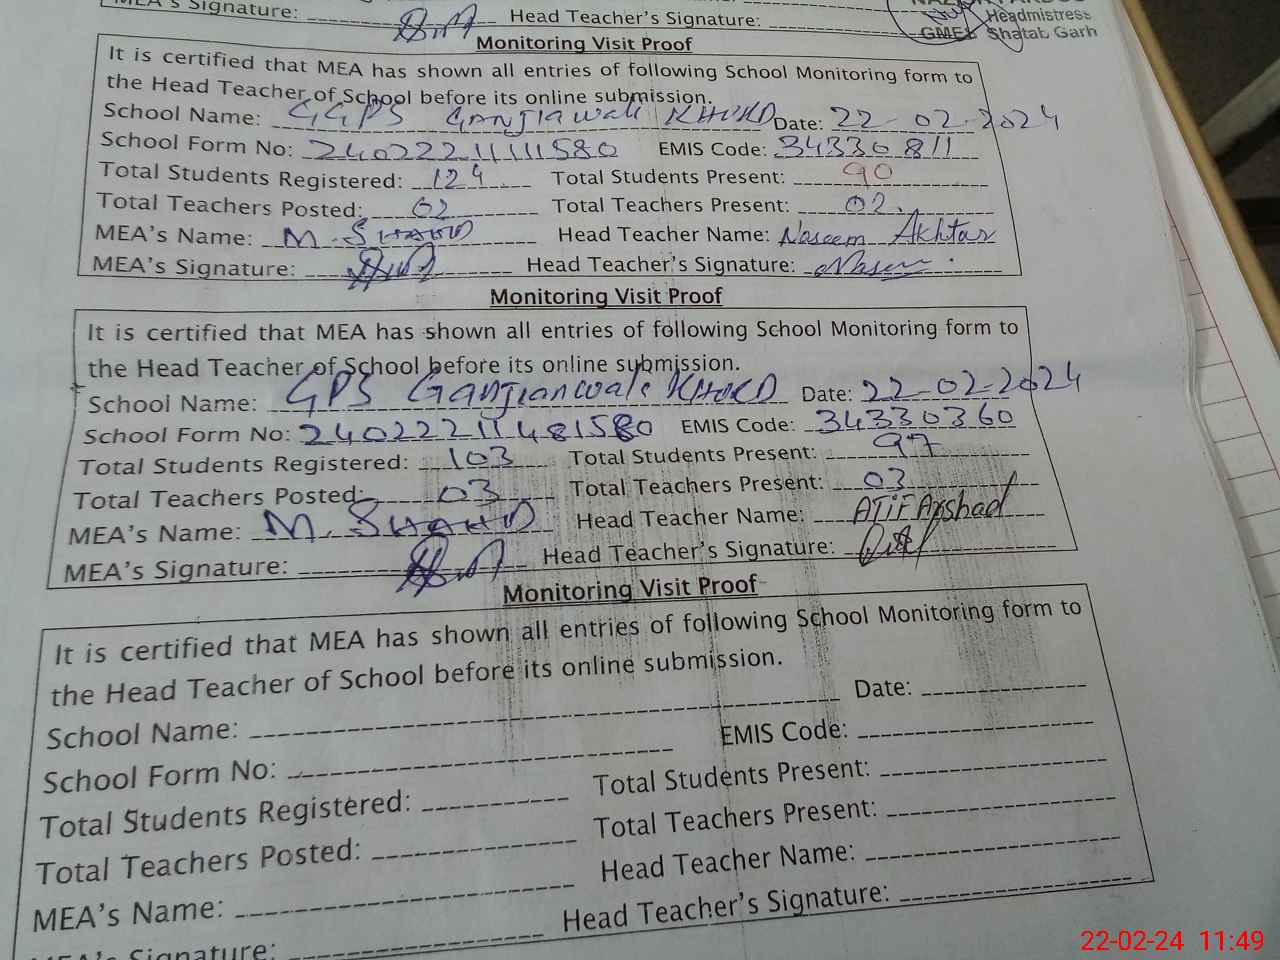 MEA's Signature: Head Teacher's Signature:
Headmistress
GMES Shatab Garh
Monitoring Visit Proof
It is certified that MEA has shown all entries of following School Monitoring form to
the Head Teacher of School before its online submission.
School Name: GGPS Ganjianwali KHURD Date: 22-02-2024
School Form No: 2402221111580 EMIS Code: 34330811
Total Students Registered: 124 Total Students Present: 90
Total Teachers Posted: 02 Total Teachers Present: 02.
MEA's Name: M. SHAHID Head Teacher Name: Naseem Akhtar
MEA's Signature: Head Teacher's Signature: Nasem
Monitoring Visit Proof
It is certified that MEA has shown all entries of following School Monitoring form to
the Head Teacher of School before its online submission.
School Name: GPS Ganjianwali KHURD Date: 22-02-2024
School Form No: 24022211481580 EMIS Code: 34330360
Total Students Registered: 103 Total Students Present: 97
Total Teachers Posted: 03 Total Teachers Present: 03
MEA's Name: M. SHAHID Head Teacher Name: ATIF Arshad
MEA's Signature: Head Teacher's Signature:
Monitoring Visit Proof
It is certified that MEA has shown all entries of following School Monitoring form to
the Head Teacher of School before its online submission.
School Name: Date:
School Form No: EMIS Code:
Total Students Registered: Total Students Present:
Total Teachers Posted: Total Teachers Present:
MEA's Name: Head Teacher Name:
MEA's Signature: Head Teacher's Signature:
22-02-24 11:49